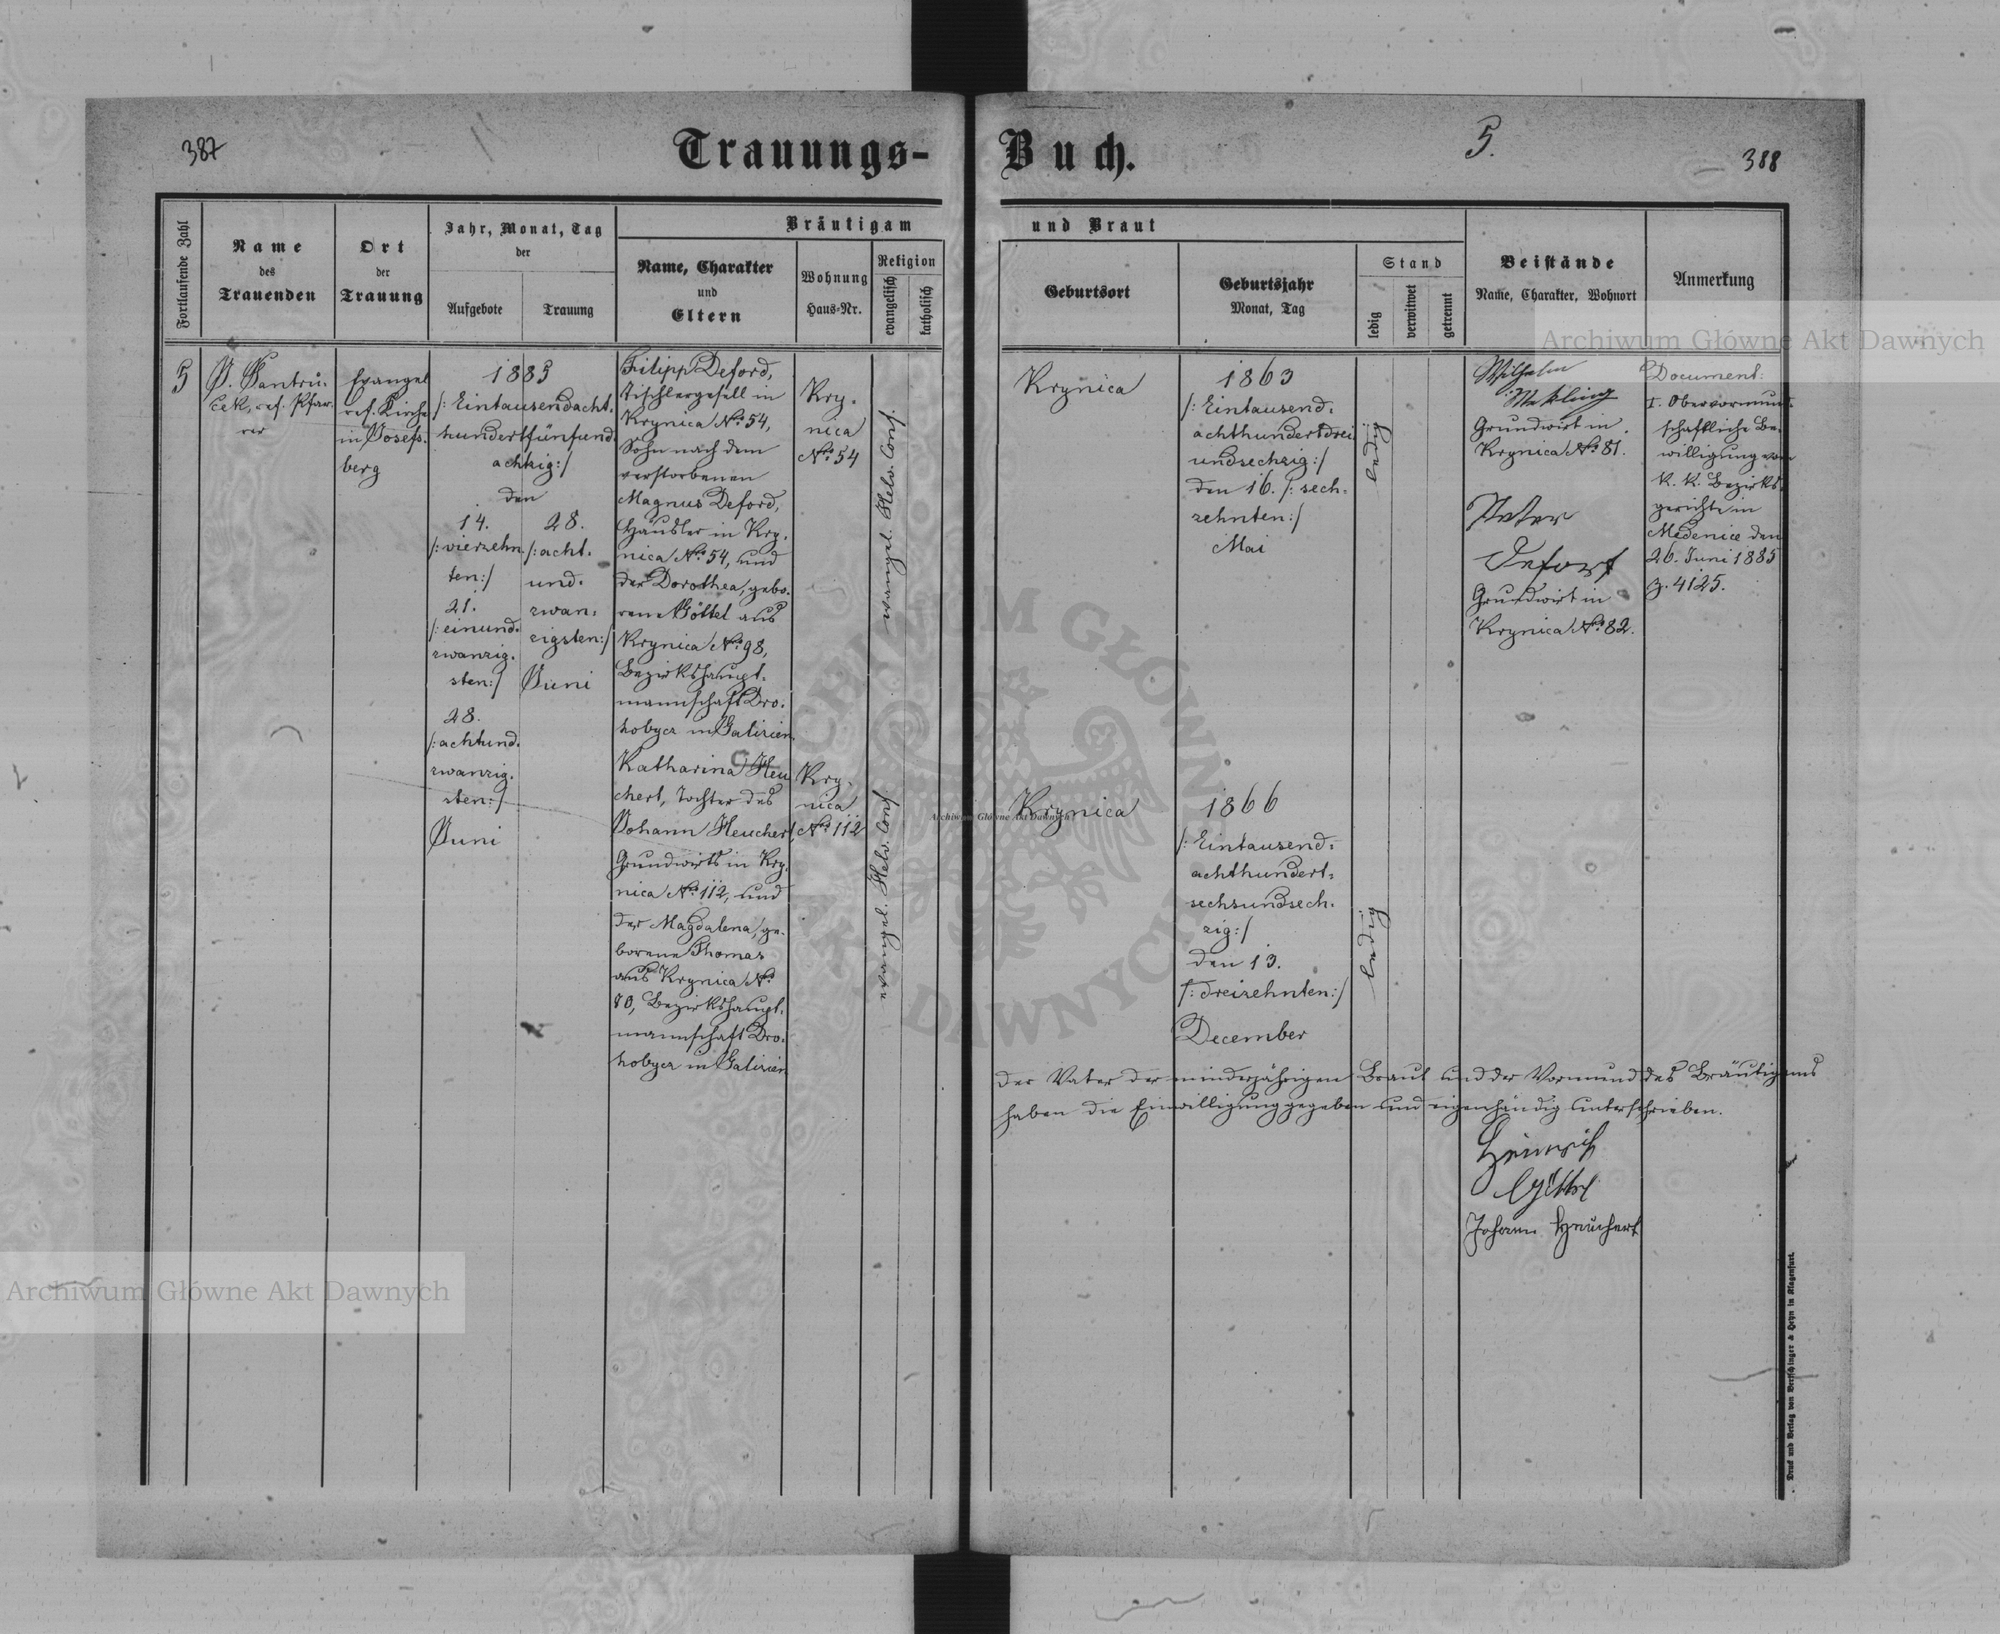 387
Trauungs-
Buch.
5.
388
Fortlaufende Zahl
Name
des
Trauenden
Ort
der
Trauung
Jahr, Monat, Tag
der
Aufgebote
Trauung
Bräutigam
Name, Charakter
und
Eltern
Wohnung
Haus-Nr.
Religion
evangelisch
katholisch
und Braut
Geburtsort
Geburtsjahr
Monat, Tag
Stand
ledig
verwitwet
getrennt
Beistände
Name, Charakter, Wohnort
Anmerkung
5
J. Jantru-
cek, ref. Pfar-
rer
Evangel.
ref. Kirche
in Josefs-
berg
1885
/: Eintausendacht-
hundertfünfund-
achtzig:/
den
14.
/: vierzehn-
ten:/
21.
/: einund-
zwanzig-
sten:/
28.
/: achtund-
zwanzig-
sten:/
Juni
28.
/: acht-
und-
zwan-
zigsten:/
Juni
Filipp Deford,
Tischlergesell in
Krynica No. 54,
Sohn nach dem
verstorbenen
Magnus Deford,
Häusler in Kry-
nica No. 54, und
der Dorothea, gebo-
rene Göttel aus
Krynica No. 98,
Bezirkshaupt-
mannschaft Dro-
hobycz in Galizien.
Kry-
nica
No. 54
evangel. Helv. Conf.
Krynica
1863
/: Eintausend-
achthundertdrei-
undsechzig:/
den 16. /: sech-
zehnten:/
Mai
ledig
Wilhelm
Grundwirt in
Krynica No. 81.
Peter
Defort
Grundwirt in
Krynica No. 82.
Document:
I. Obervormund-
schaftliche Be-
willigung vom
k. k. Bezirks-
gerichte in
Medenice den
26. Juni 1885
Z. 4125.
Katharina Heu-
chert, Tochter des
Johann Heuchert,
Grundwirts in Kry-
nica No. 112, und
der Magdalena, ge-
borene Thomas
aus Krynica No.
80, Bezirkshaupt-
mannschaft Dro-
hobycz in Galizien
Kry-
nica
No. 112
evangel. Helv. Conf.
Krynica
1866
/: Eintausend-
achthundert-
sechsundsech-
zig:/
den 13.
/: dreizehnten:/
December
ledig
Der Vater der minderjährigen Braut und der Vormund des Bräutigams
haben die Einwilligung gegeben und eigenhändig unterschrieben.
Heinrich
Göttel
Johann Heuchert
Druck und Verlag von Bertschinger & Heyn in Klagenfurt.
Archiwum Główne Akt Dawnych
Archiwum Główne Akt Dawnych
Archiwum Główne Akt Dawnych
ARCHIWUM GŁÓWNE
AKT DAWNYCH